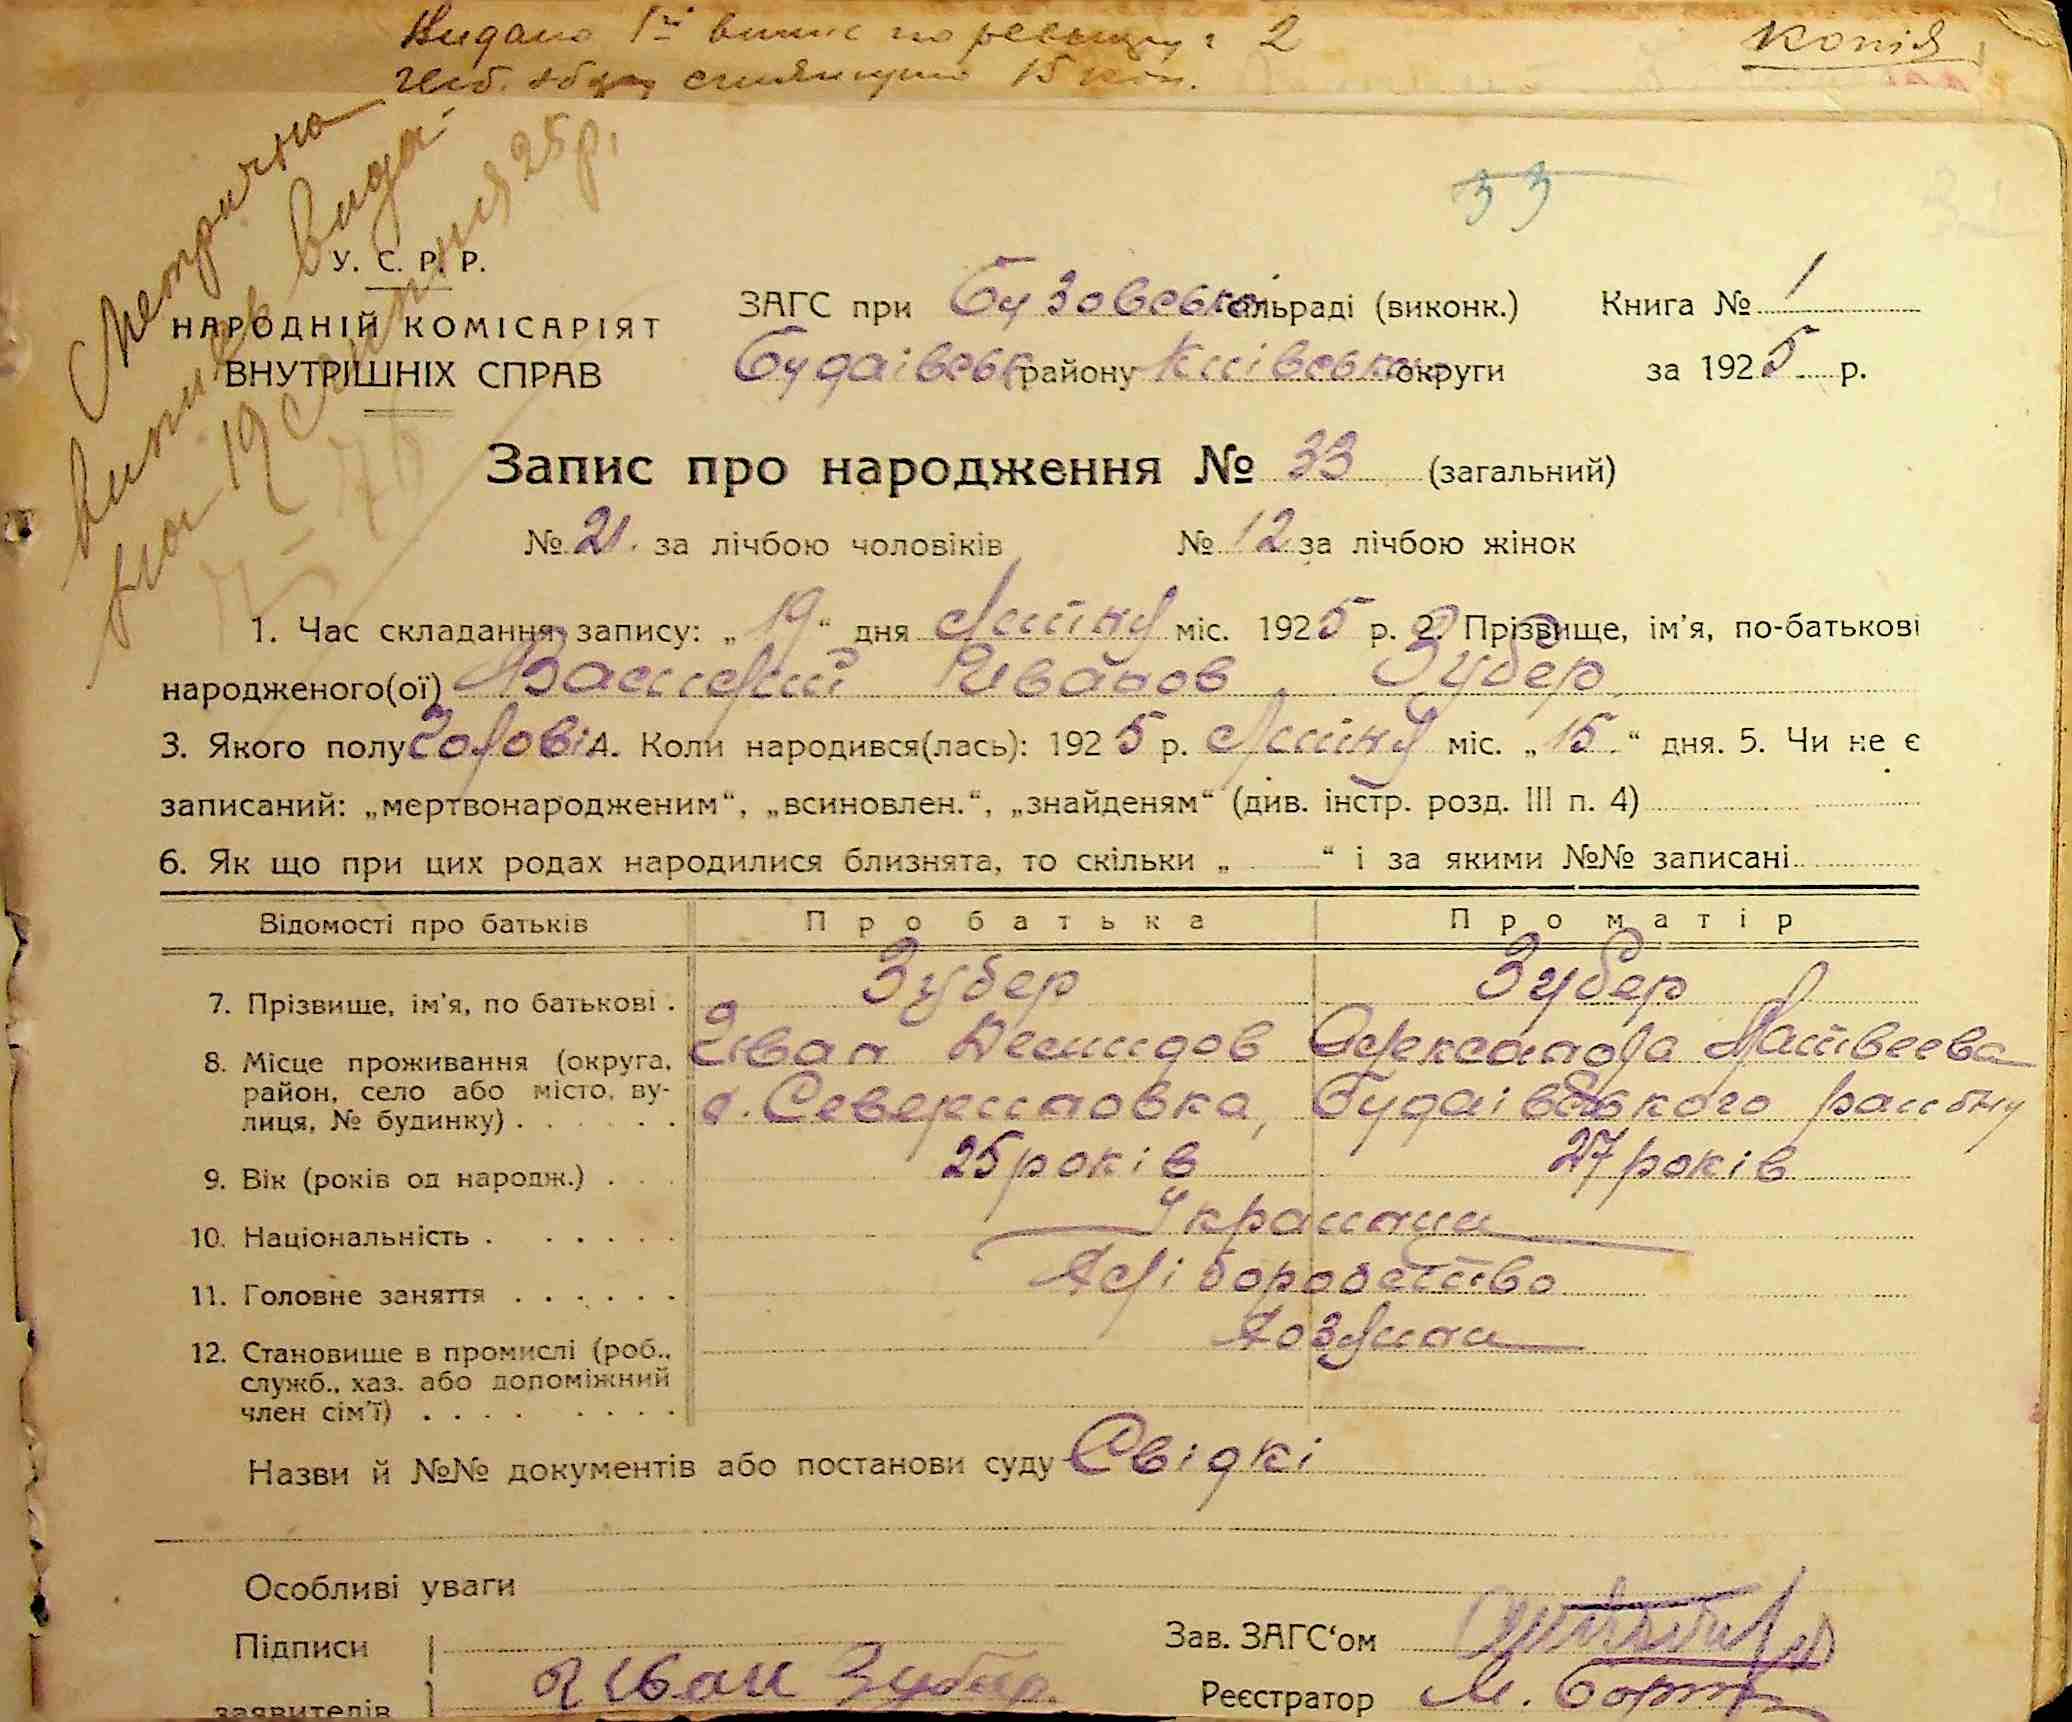 Видано 1й випис по реєстру 2
копія
гекб. збору стягнуто 15 коп.
33
Метрична
випись вида-
на 19 липня 25 р.
У. С. Р. Р.
НАРОДНІЙ КОМІСАРІЯТ
ВНУТРІШНІХ СПРАВ
ЗАГС при Бузовськ сільраді (виконк.) Книга № 1
Будаівськ району Київської округи за 1925 р.
Запис про народження № 33 (загальний)
№ 21 за лічбою чоловіків № 12 за лічбою жінок
1. Час складання запису: „19“ дня Липня міс. 1925 р. 2. Прізвище, ім'я, по-батькові
народженого(ої) Василий Иванов Зубер
3. Якого полу Чолові 4. Коли народився(лась): 1925 р. Липня міс. „15“ дня. 5. Чи не є
записаний: „мертвонародженим“, „всиновлен.“, „знайденям“ (див. інстр. розд. III п. 4)
6. Як що при цих родах народилися близнята, то скільки „ “ і за якими №№ записані
Відомості про батьків Про батька Про матір
7. Прізвище, ім'я, по батькові . Зубер Зубер
Иван Демидов Александра Матвеева
8. Місце проживання (округа, район, село або місто, вулиця, № будинку) . . . . . . с. Севериновка, Будаівського району
9. Вік (років од народж.) . . . 25 років 27 років
10. Національність . . . . . . Украинци
11. Головне заняття . . . . . . Хліборобство
12. Становище в промислі (роб., служб., хаз. або допоміжний член сім'ї) . . . . . . . . Хозяини
Назви й №№ документів або постанови суду Свідкі
Особливі уваги
Підписи
Зав. ЗАГС'ом
заявителів Иван Зубер
Реєстратор М.